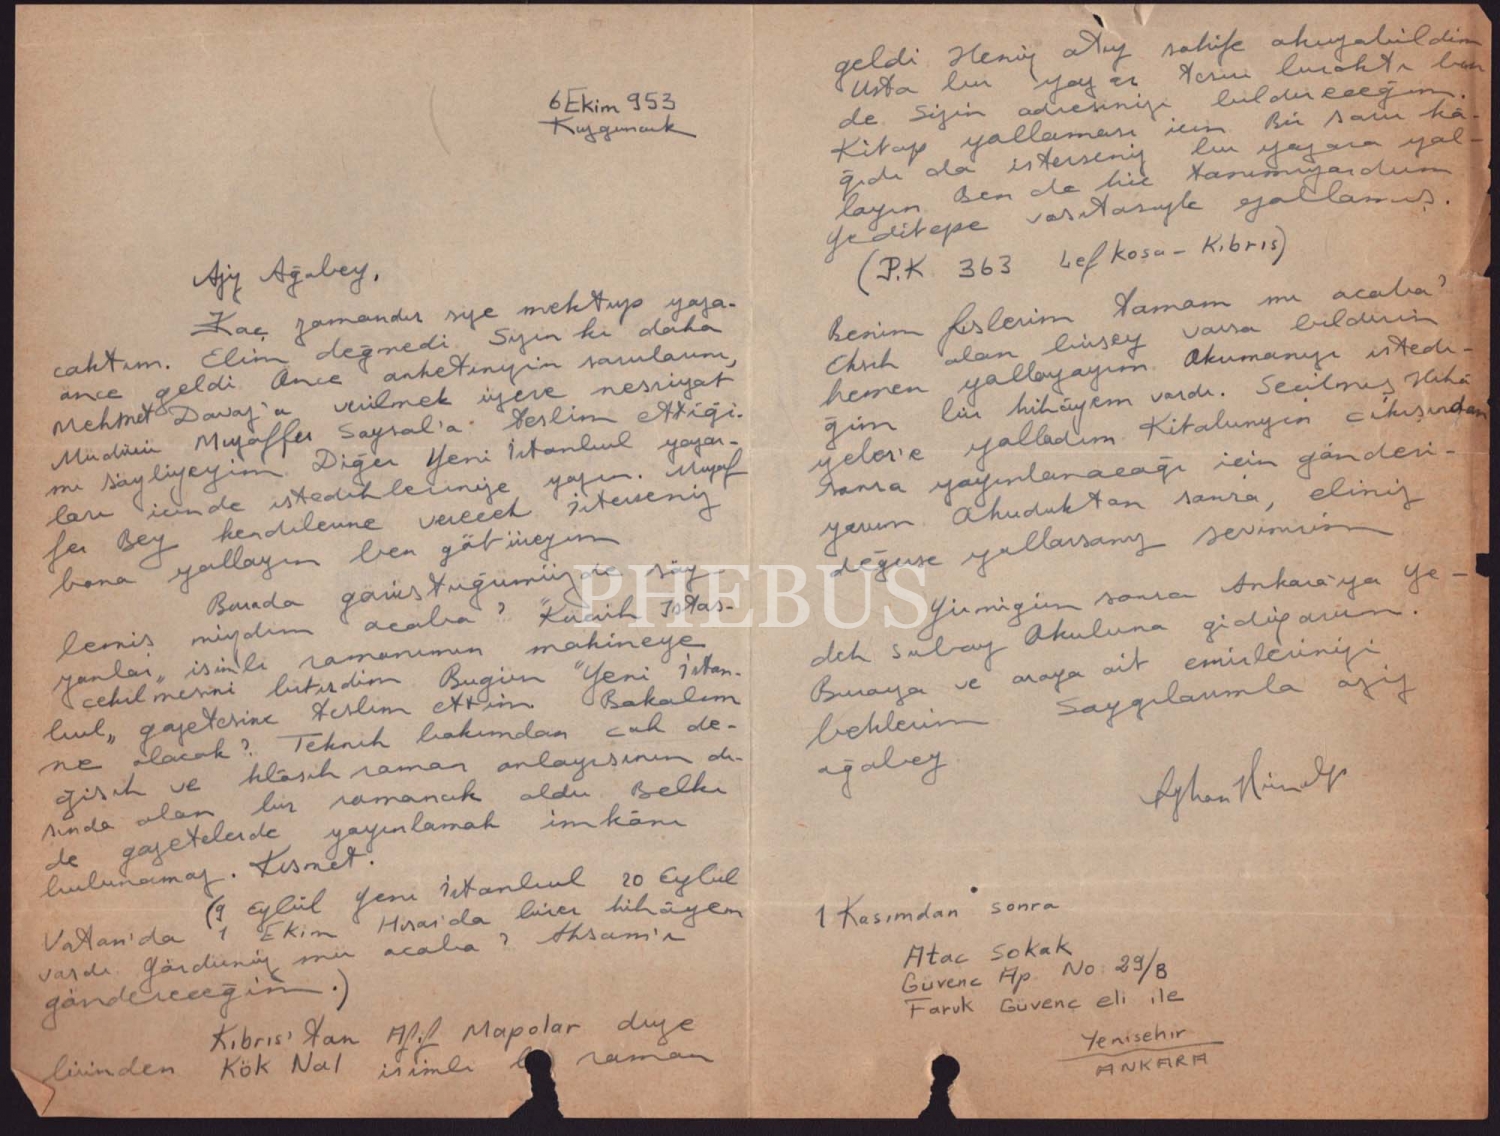 6 Ekim 953
Kuzguncuk
Aziz Ağabey,
Kaç zamandır size mektup yaza-
caktım. Elim değmedi. Sizin ki daha
önce geldi. Önce anketinizin sorularını,
Mehmet Davaz'a verilmek üzere neşriyat
Müdürü Muzaffer Soysal'a teslim ettiği-
mi söyliyeyim. Diğer Yeni İstanbul yazar-
ları içinde istediklerinize yazın. Muzaf
fer Bey kendilerine verecek. İsterseniz
bana yollayın ben götüreyim
Burada görüştüğümüzde söy-
lemiş miydim acaba? "Küçük İstas-
yonlar" isimli romanımın makineye
çekilmesini bitirdim. Bugün "Yeni İstan-
bul" gazetesine teslim ettim. Bakalım
ne olacak? Teknik bakımdan çok de-
ğişik ve klâsik roman anlayışının dı-
şında olan bir romancık oldu. Belki
de gazetelerde yayınlamak imkânı
bulunamaz. Kısmet.
(9 Eylül Yeni İstanbul 20 Eylül
Vatan'da 1 Ekim Hisar'da birer hikâyem
vardı. Gördünüz mü acaba? Akşam'ı
göndereceğim.)
Kıbrıs'tan Afif Mapolar diye
birinden Kök Nal isimli bir roman
geldi Henüz altmış sahife okuyabildim
Usta bir yazar tesiri bıraktı ben
de. Sizin adresinizi bildireceğim.
Kitap yollaması için. Bir soru kâ-
ğıdı da isterseniz bu yazara yol-
layın. Ben de hiç tanımıyordum
Yeditepe vasıtasıyle yollamış.
(P.K 363 Lefkoşa - Kıbrıs)
Benim fişlerim tamam mı acaba?
Eksik olan birşey varsa bildirin
hemen yollayayım. Okumanızı istedi-
ğim bir hikâyem vardı. Seçilmiş Hikâ
yeler'e yolladım. Kitabınızın çıkışından
sonra yayınlanacağı için gönderi-
yorum. Okuduktan sonra, eliniz
değerse yollarsanız sevinirim
Yirmigün sonra Ankara'ya Ye-
dek Subay Okuluna gidiyorum.
Buraya ve oraya ait emirlerinizi
beklerim. Saygılarımla aziz
ağabey.
Ayhan Hünalp
1 Kasımdan sonra
Ataç Sokak
Güvenç Ap. No: 29/B
Faruk Güvenç eli ile
Yenişehir
ANKARA
PHEBUS